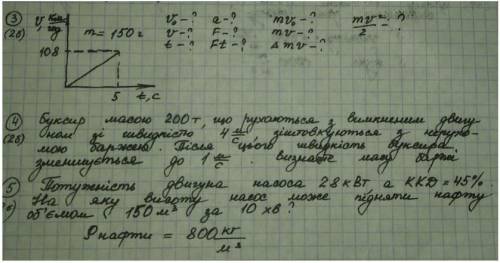 ③ V, км/год m = 150 г V₀ - ? a - ? mV₀ - ? mV²/2 - ?
(2б) 108 V - ? F - ? mV - ?
t - ? Ft - ? ΔmV - ?
5 t, c
④ Буксир масою 200 т, що рухаються з вимкненим двигу-
(2б) ном зі швидкістю 4 м/с зіштовхуються з нерухо-
мою баржею. Після цього швидкість буксира
зменшується до 1 м/с. Визначте масу баржі.
⑤ Потужність двигуна насоса 28 кВт а ККД = 45%
На яку висоту насос може підняти нафту
об'ємом 150 м³ за 10 хв?
ρ нафти = 800 кг/м³